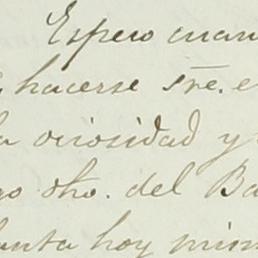 Espero cuan
hacerse sre. e
a ociosidad y
go dho. del Ba
unta hoy mism